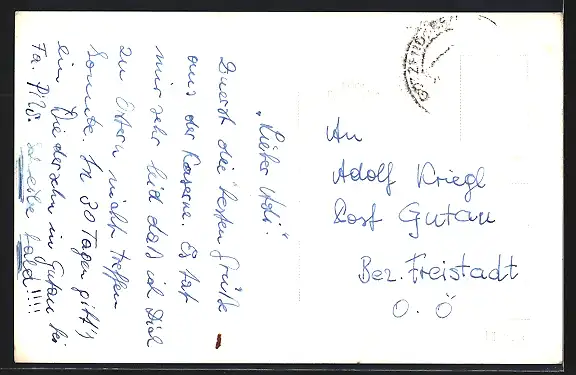 „Lieber Adi“
Zuerst die besten Grüße
aus der Kaserne. Es tat
mir sehr leid daß ich Dich
zu Ostern nicht treffen
konnte. In 30 Tagen gibt's
ein Wiedersehn in Gutau bei
Fa.
Schreibe bald!!!!
An
Adolf Kriegl
Post Gutau
Bez. Freistadt
O. Ö